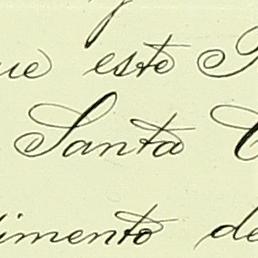 ue este
Santa C
imento de